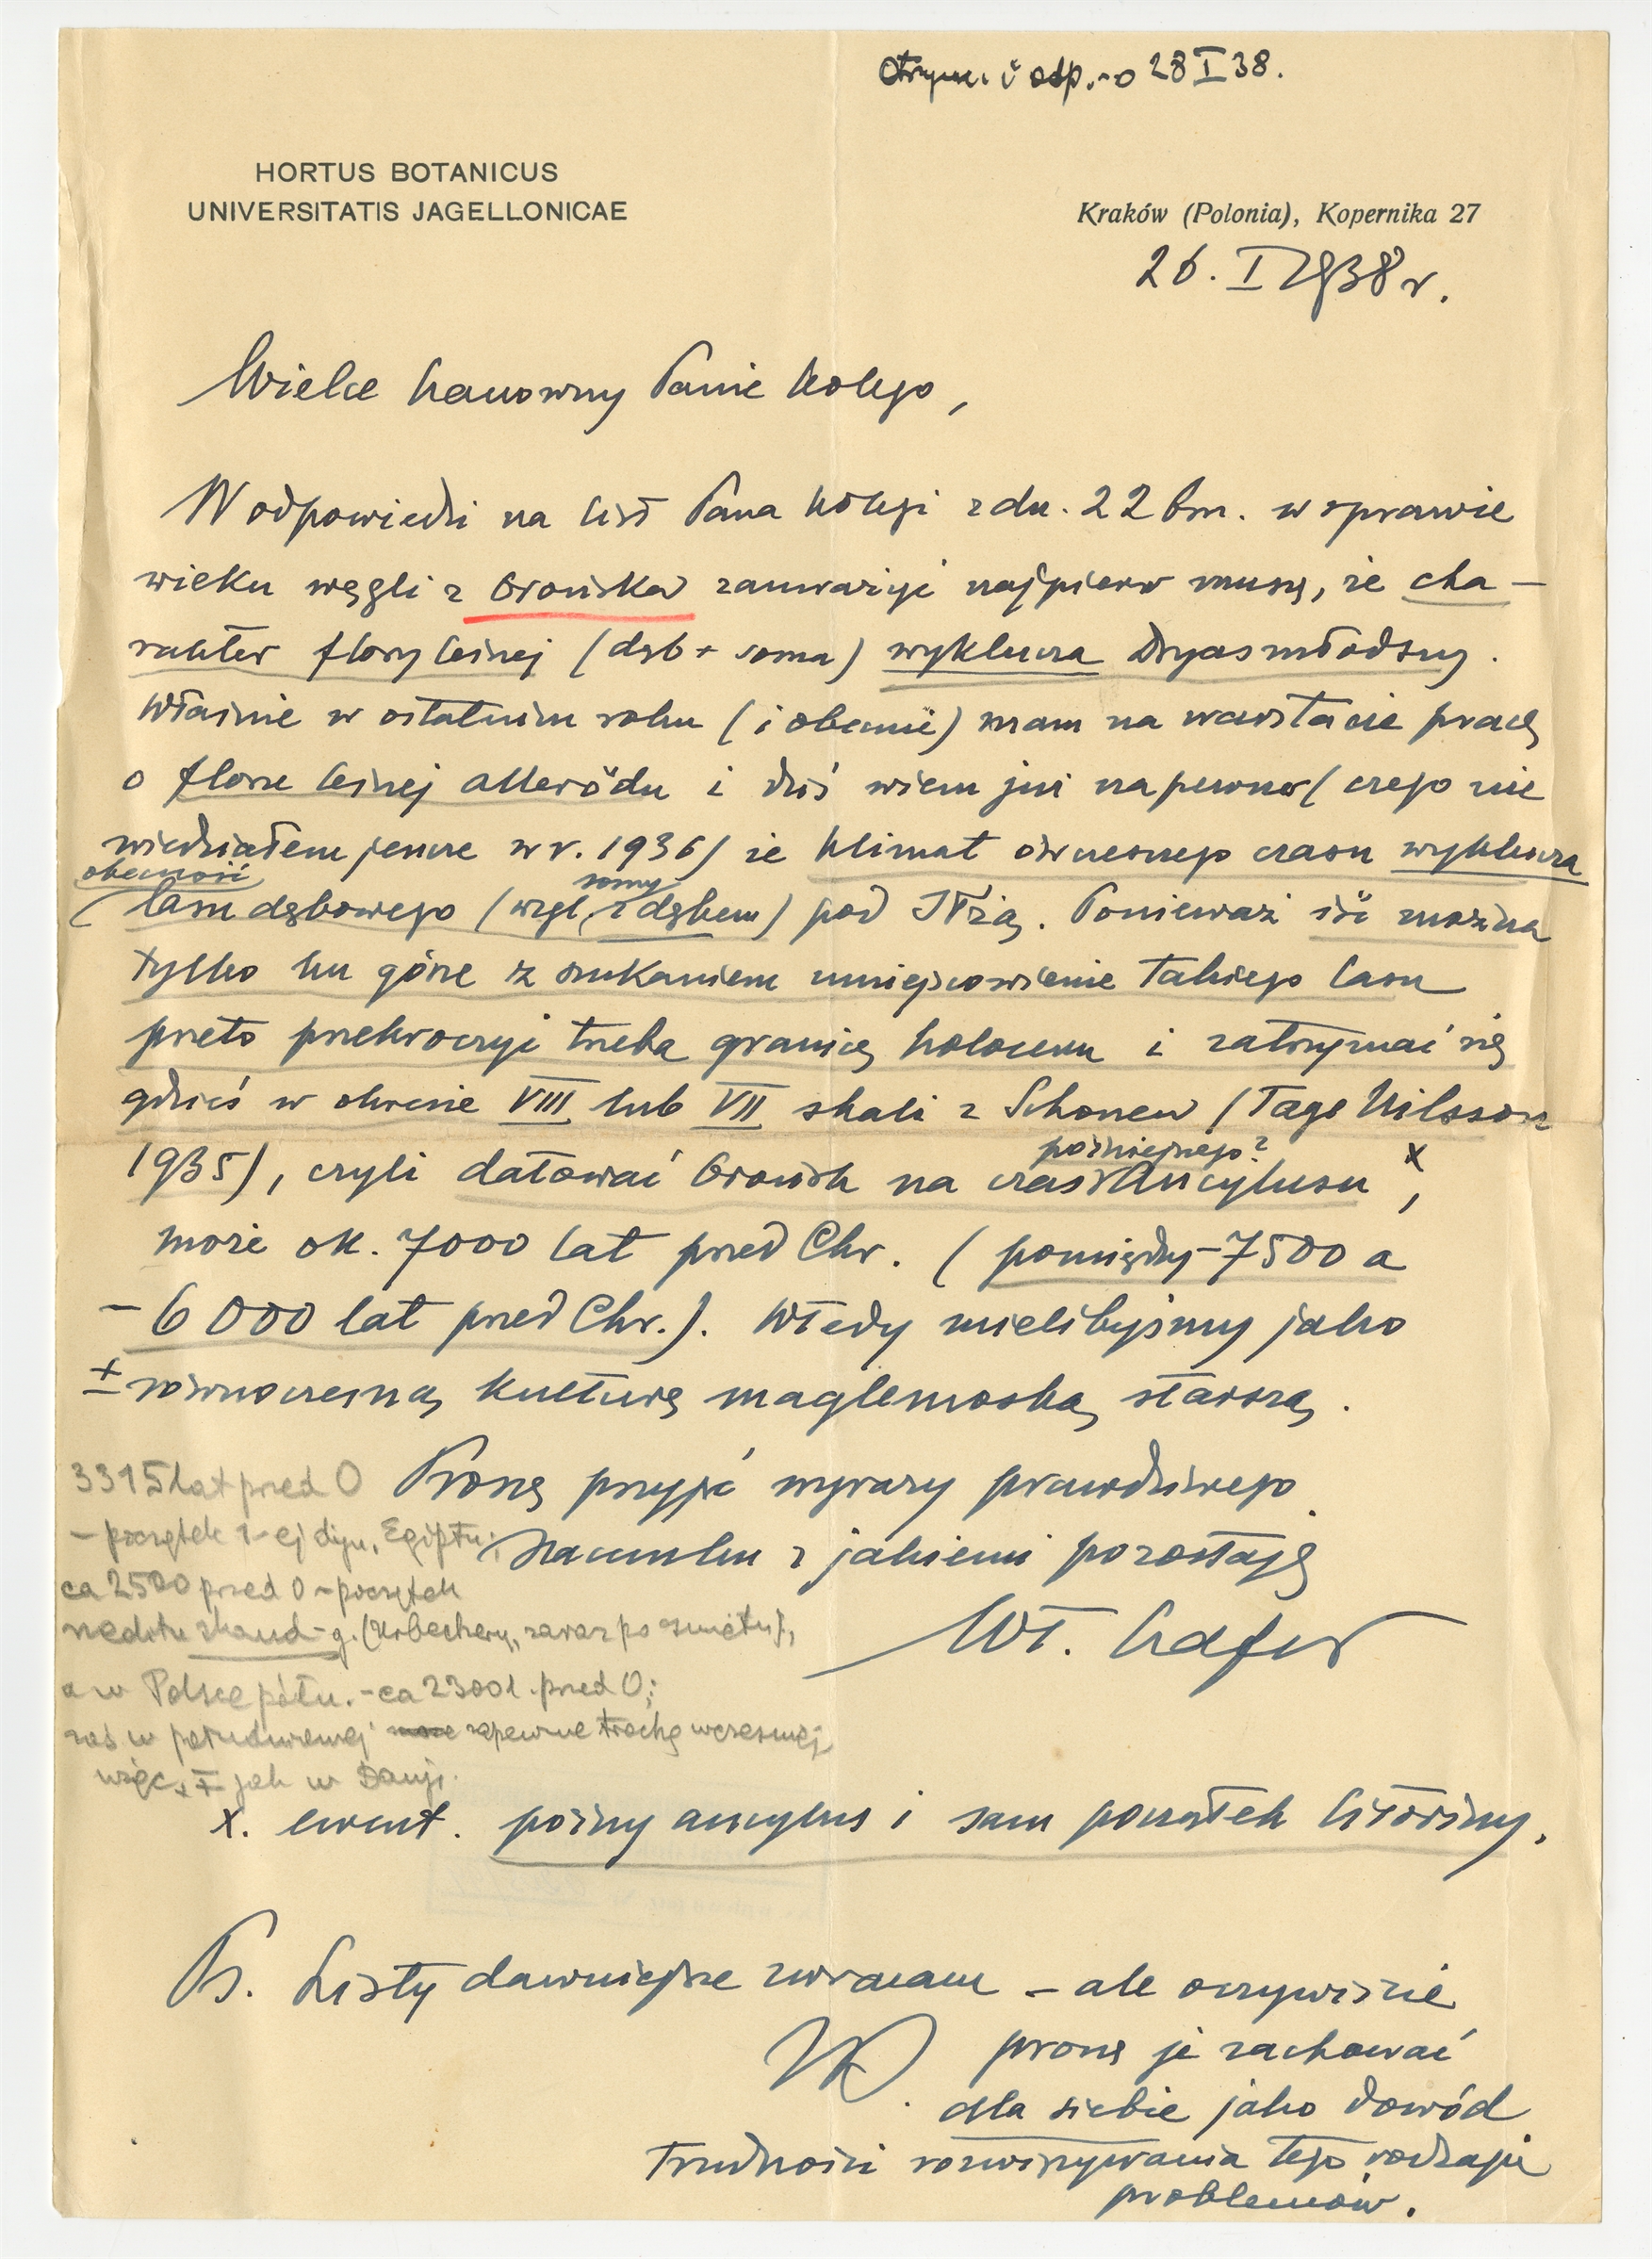 Otrzym. i odp.-o 28 I 38.
HORTUS BOTANICUS
UNIVERSITATIS JAGELLONICAE
Kraków (Polonia), Kopernika 27
26. I 1938 r.
Wielce Szanowny Panie Kolego,
W odpowiedzi na list Pana Kolegi z dn. 22 bm. w sprawie
wieku węgli z Orońska zauważyć najpierw muszę, że cha-
rakter flory leśnej (dąb + sosna) wyklucza Dryas młodszy.
Właśnie w ostatnim roku (i obecnie) mam na warstacie pracę
o florze leśnej allerödu i dziś wiem już napewno (czego nie
wiedziałem jeszcze w r. 1936) że klimat ówczesnego czasu wyklucza
obecność
lasu dębowego (wzgl. sosny z dębem) pod Iłżą. Ponieważ iść można
tylko ku górze z szukaniem umiejscowienie takiego lasu
przeto przekroczyć trzeba granicę holocenu i zatrzymać się
gdzieś w okresie VIII lub VII skali z Schonen (Tage Nilsson
1935), czyli datować Orońsk na czas późniejszego? Ancylusu x,
może ok. 7000 lat przed Chr. (pomiędzy -7500 a
-6000 lat przed Chr.). Wtedy mielibyśmy jako
± równoczesną kulturę maglemoską starszą.
Proszę przyjąć wyrazy prawdziwego
szacunku z jakiemi pozostaję
Wł. Szafer
3315 lat przed 0
- początek 1-ej dyn. Egiptu;
ca 2500 przed 0 - początek
neolitu skand-g. (zaraz po
a w Polsce półn. - ca 2300 l. przed 0;
zaś w południowej zapewne trochę wcześniej,
więc ± jak w Danji.
x. ewent. późny ancylus i sam początek litoriny.
Ps. Listy dawniejsze zwracam - ale oczywiście
proszę je zachować
dla siebie jako dowód
trudności rozwiązywania tego rodzaju
problemów.